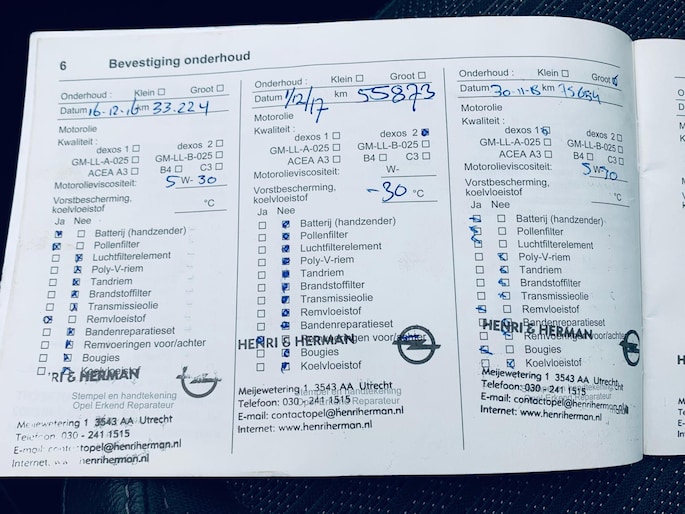 6 Bevestiging onderhoud
Onderhoud : Klein Groot
Datum 16-12-16 km 33.224
Motorolie
Kwaliteit :
dexos 1 dexos 2
GM-LL-A-025 GM-LL-B-025
ACEA A3 B4 C3
Motorolieviscositeit: 5 W- 30
Vorstbescherming,
koelvloeistof °C
Ja Nee
Batterij (handzender)
Pollenfilter
Luchtfilterelement
Poly-V-riem
Tandriem
Brandstoffilter
Transmissieolie
Remvloeistof
Bandenreparatieset
Remvoeringen voor/achter
Bougies
Koelvloeistof
HENRI & HERMAN
Stempel en handtekening
Opel Erkend Reparateur
Meijewetering 1 3543 AA Utrecht
Telefoon: 030 - 241 1515
E-mail: contactopel@henriherman.nl
Internet: www.henriherman.nl
Onderhoud : Klein Groot
Datum 1/12/17 km 55873
Motorolie
Kwaliteit :
dexos 1 dexos 2
GM-LL-A-025 GM-LL-B-025
ACEA A3 B4 C3
Motorolieviscositeit: W-
Vorstbescherming,
koelvloeistof -30 °C
Ja Nee
Batterij (handzender)
Pollenfilter
Luchtfilterelement
Poly-V-riem
Tandriem
Brandstoffilter
Transmissieolie
Remvloeistof
Bandenreparatieset
Remvoeringen voor/achter
Bougies
Koelvloeistof
HENRI & HERMAN
Stempel en handtekening
Opel Erkend Reparateur
Meijewetering 1 3543 AA Utrecht
Telefoon: 030 - 241 1515
E-mail: contactopel@henriherman.nl
Internet: www.henriherman.nl
Onderhoud : Klein Groot
Datum 30-11-18 km
Motorolie
Kwaliteit :
dexos 1 dexos 2
GM-LL-A-025 GM-LL-B-025
ACEA A3 B4 C3
Motorolieviscositeit: 5 W-30
Vorstbescherming,
koelvloeistof °C
Ja Nee
Batterij (handzender)
Pollenfilter
Luchtfilterelement
Poly-V-riem
Tandriem
Brandstoffilter
Transmissieolie
Remvloeistof
Bandenreparatieset
Remvoeringen voor/achter
Bougies
Koelvloeistof
HENRI & HERMAN
Stempel en handtekening
Opel Erkend Reparateur
Meijewetering 1 3543 AA Utrecht
Telefoon: 030 - 241 1515
E-mail: contactopel@henriherman.nl
Internet: www.henriherman.nl